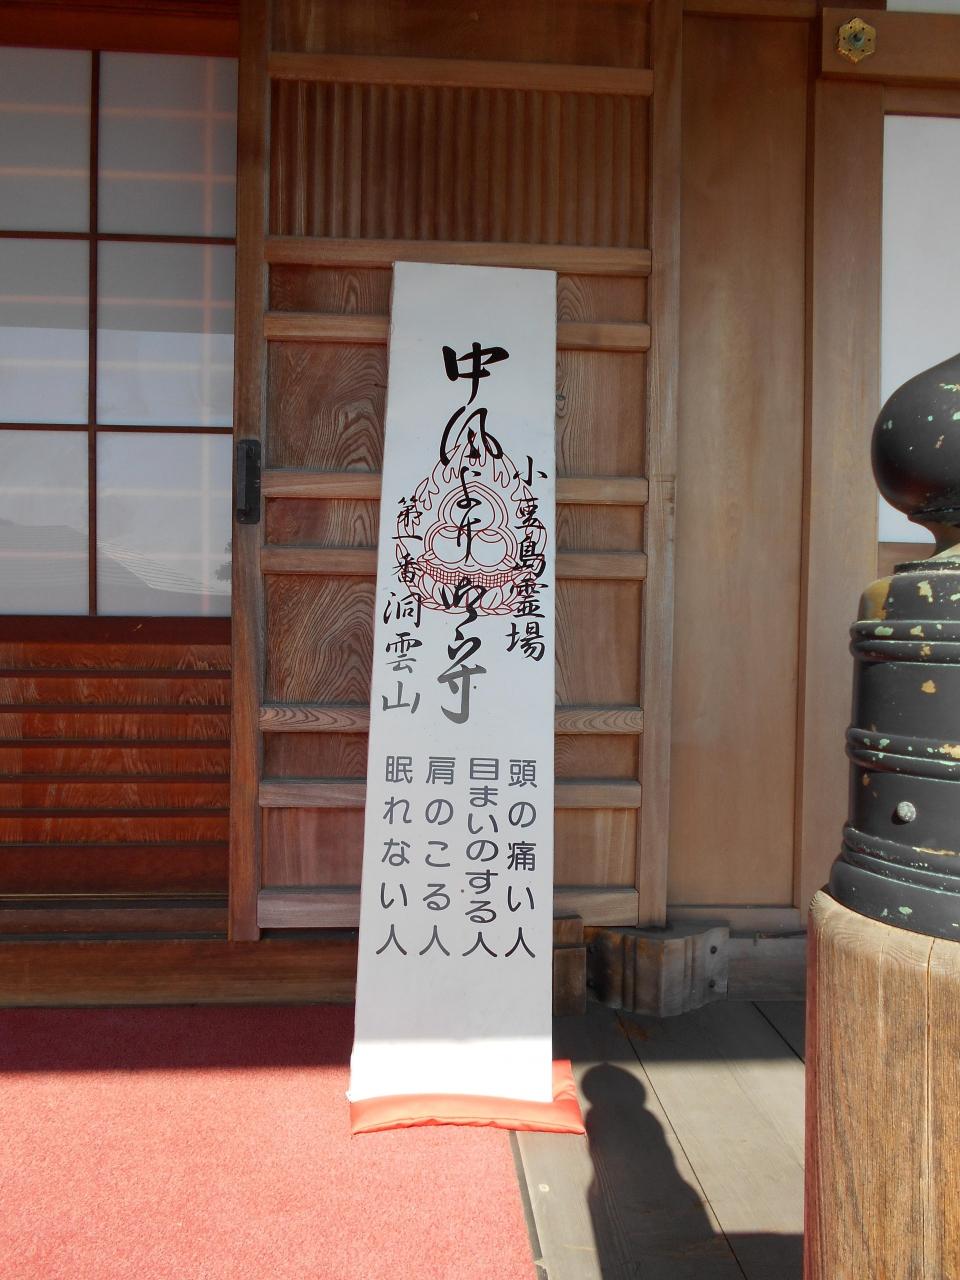 小豆島霊場
中風よけ御守
第一番洞雲山
頭の痛い人
目まいのする人
肩のこる人
眠れない人